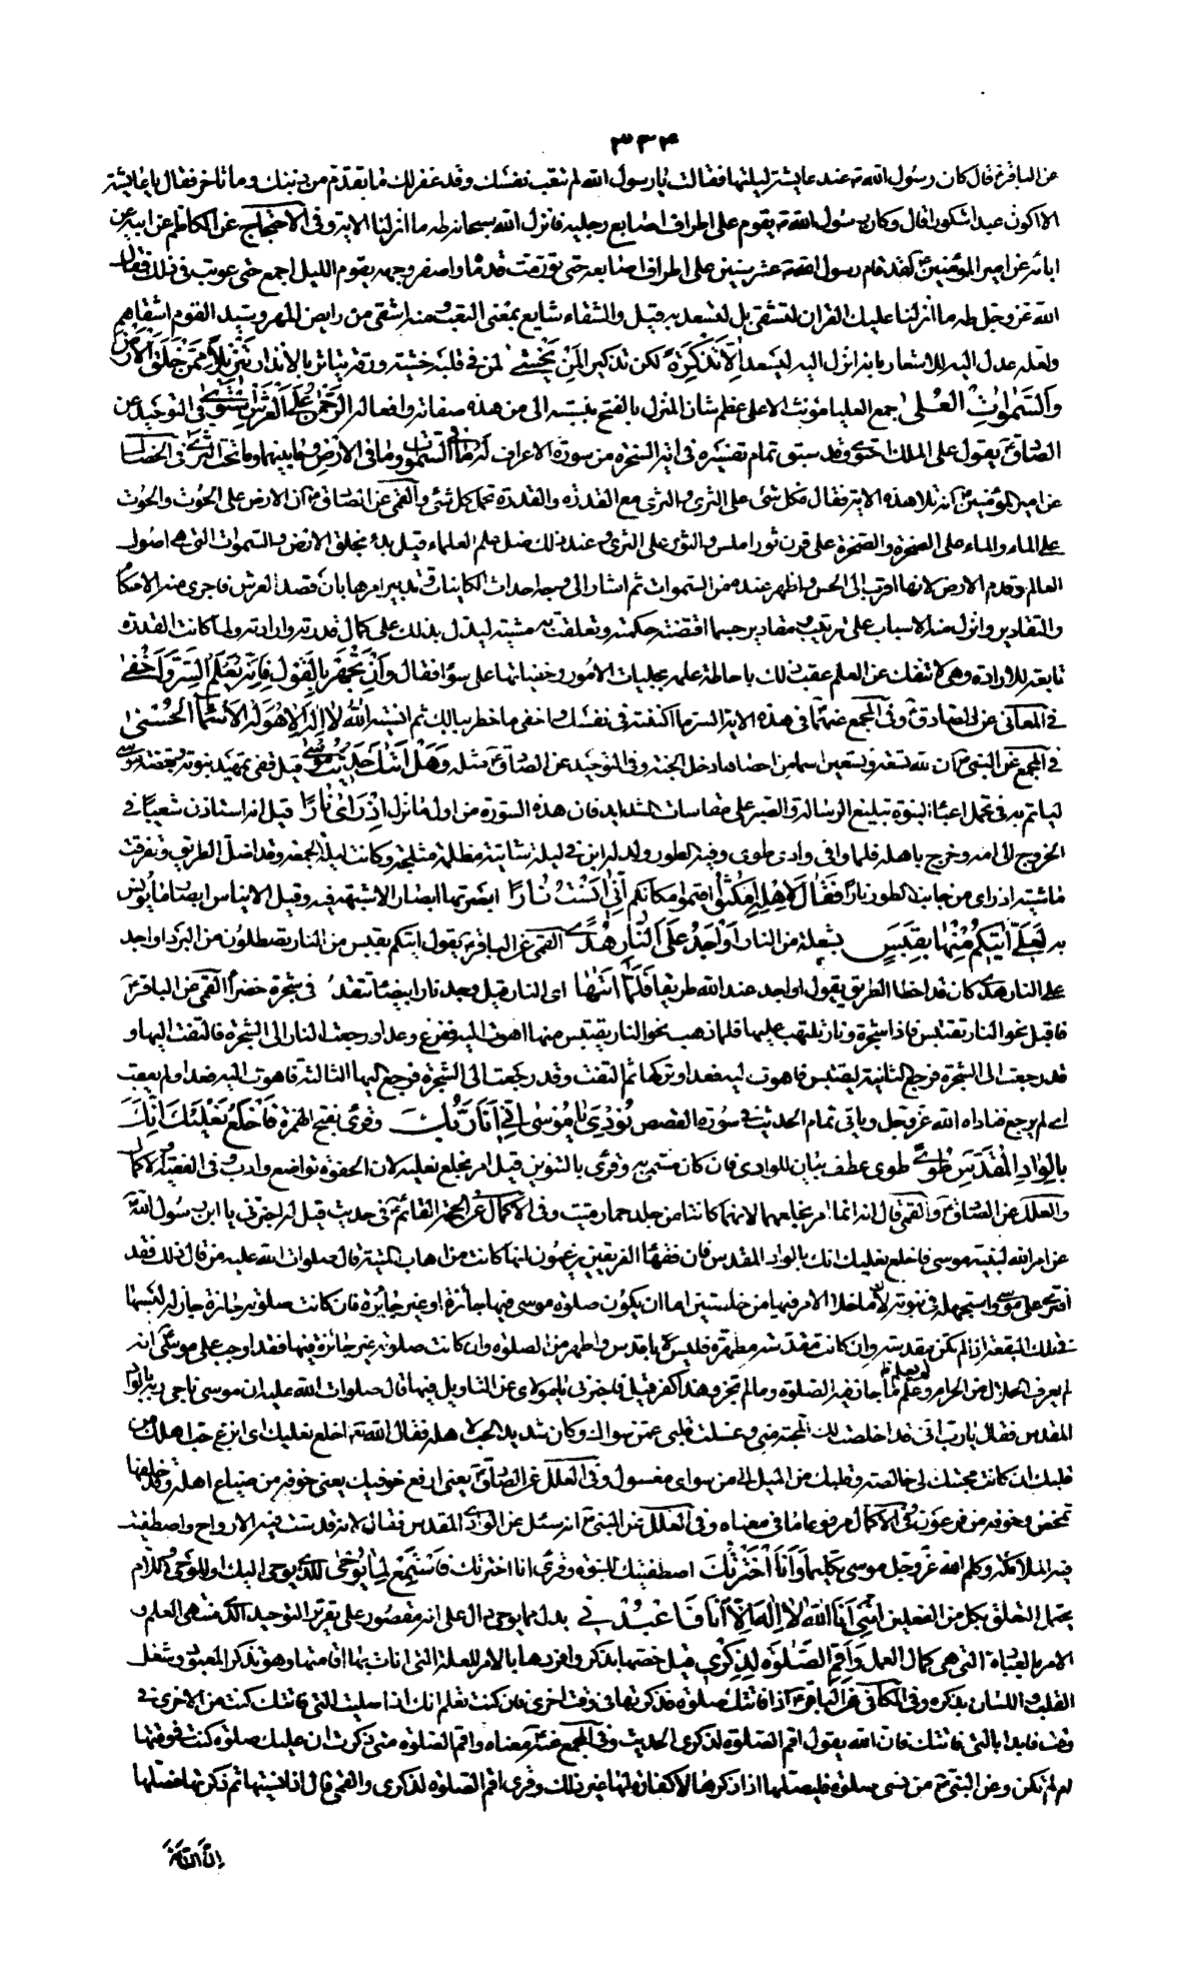 ٣٣۴
عن الباقر ع قال كان رسول الله ص عند عايشة ليلتها فقالت يا رسول الله لم تتعب نفسك وقد غفر لك ما تقدم من ذنبك وما تأخر فقال يا عايشة
الا اكون عبدا شكورا قال وكان رسول الله ص يقوم على اطراف اصابع رجليه فانزل الله سبحانه طه ما انزلنا الاية وفي الاحتجاج عن الكاظم عن ابيه عن
ابائه عن امير المؤمنين ع لقد قام رسول الله ص عشر سنين على اطراف اصابعه حتى تورمت قدماه واصفر وجهه يقوم الليل اجمع حتى عوتب في ذلك فقال
الله عز وجل طه ما انزلنا عليك القران لتشقى بل لتسعد به قيل والشقاء شايع بمعنى التعب ومنه اشقى من رايض المهر وسيد القوم اشقاهم
ولعله عدل اليه للاشعار بانه انزل اليه ليسعد اِلّا تَذْكِرَةً لكن تذكيرا لِمَنْ يَخْشى لمن في قلبه خشية ورقة يتاثر بالانذار تَنْزِيلاً مِمَّنْ خَلَقَ الْاَرْضَ
وَالسَّمٰواتِ الْعُلى جمع العليا مونث الاعلى عظم شان المنزل بالفتح بنسبته الى من هذه صفاته وافعاله الرَّحْمٰنُ عَلَى الْعَرْشِ اسْتَوى في التوحيد عن
الصادق ع يقول على الملك احتوى وقد سبق تمام تفسيره في اية السخرة من سورة الاعراف لَهُ ما في السموات وما في الارض وما بينهما وما تحت الثرى في الخصال
عن امير المؤمنين ع انه تلا هذه الاية فقال فكل شئ على الثرى والثرى مع القدرة والقدرة تحمل كل شئ والقمي عن الصادق ع ان الارض على الحوت والحوت
على الماء والماء على الصخرة والصخرة على قرن ثور املس والثور على الثرى وعند ذلك ضل علم العلماء قيل بدء بخلق الارض والسموات التي هي اصول
العالم وقدم الارض لانها اقرب الى الحس واظهر عنده من السموات ثم اشار الى وجه احداث الكاينات وتدبير امرها بان قصد العرش فاجرى منه الاحكام
والتقادير وانزل منه الاسباب على ترتيب ومقادير حسبما اقتضته حكمته وتعلقت به مشيته ليدل بذلك على كمال قدرته وارادته ولما كانت القدرة
تابعة للارادة وهي لا تنفك عن العلم عقب ذلك باحاطة علمه بجليات الامور وخفياتها على سواء فقال وَاِنْ تَجْهَرْ بِالْقَوْلِ فَاِنَّهُ يَعْلَمُ السِّرَّ وَاَخْفى
في المعاني عن الصادق ع وفي المجمع عنهما ع في هذه الاية السر ما اكننته في نفسك واخفى ما خطر ببالك ثم انسيته اَللهُ لا اِلهَ اِلّا هُوَ لَهُ الْاَسْماءُ الْحُسْنى
في المجمع عن النبي ص ان لله تسعة وتسعين اسما من احصاها دخل الجنة وفي التوحيد عن الصادق ع مثله وَهَلْ اَتيكَ حَديثُ مُوسى قيل قفى تمهيد نبوته بقصة موسى
لياتم به في تحمل اعباء النبوة وتبليغ الرسالة والصبر على مقاسات الشدايد فان هذه السورة من اول ما نزل اِذْ رَاى نارًا قيل انه استاذن شعيبا في
الخروج الى امه وخرج باهله فلما وافى وادي طوى وفيه الطور ولد له ابن في ليلة شاتية مظلمة مثلجة وكانت ليلة الجمعة وقد اضل الطريق وتفرقت
ماشيته اذ راى من جانب الطور نارا فَقالَ لِاَهْلِهِ امْكُثُوا اقيموا مكانكم اِنّي انَسْتُ نارًا ابصرتها ابصارا لا شبهة فيه وقيل الايناس ابصار ما يؤنس
به لَعَلّي اتيكُمْ مِنْها بِقَبَسٍ بشعلة من النار اَوْ اَجِدُ عَلَى النّارِ هُدًى القمي عن الباقر ع يقول اتيكم بقبس من النار تصطلون من البرد او اجد
على النار هدى كان قد اخطا الطريق يقول او اجد عند الله طريقا فَلَمّا اَتيها اى النار قيل وجد نارا بيضاء تتقد في شجرة خضراء القمي عن الباقر ع
فاقبل نحو النار يقتبس فاذا شجرة ونار تلتهب عليها فلما ذهب نحو النار يقتبس منها اهوت اليه ففزع وعدا ورجعت النار الى الشجرة فالتفت اليها و
قد رجعت الى الشجرة فرجع الثانية ليقتبس فاهوت اليه فعدا وتركها ثم التفت وقد رجعت الى الشجرة فرجع اليها الثالثة فاهوت اليه فعدا ولم يعقب
اى لم يرجع فناداه الله عز وجل وياتي تمام الحديث في سورة القصص نُودِيَ يا مُوسى اِنّي اَنَا رَبُّكَ وقرئ بفتح الهمزة فَاخْلَعْ نَعْلَيْكَ اِنَّكَ
بِالْوادِ الْمُقَدَّسِ طُوىً طوى عطف بيان للوادي فان كان مسمى به وقرئ بالتنوين قيل امر بخلع نعليه لان الحفوة تواضع وادب وفي الفقيه والاكمال
والعلل عن الصادق ع والقمي قال انه انما امر بخلعهما لانهما كانتا من جلد حمار ميت وفي الاكمال عن الحجة القائم ع في حديث قيل له اخبرني يا ابن رسول الله
عن امر الله لنبيه موسى فاخلع نعليك انك بالواد المقدس فان فقهاء الفريقين يزعمون انها كانت من اهاب الميتة قال صلوات الله عليه من قال ذلك فقد
افترى على موسى واستجهله في نبوته لانه ما خلا الامر فيها من خطبتين اما ان يكون صلوة موسى فيها جائزة او غير جائزة فان كانت صلوته جائزة جاز له لبسها
في تلك البقعة اذ لم تكن مقدسة وان كانت مقدسة مطهرة فليس باقدس واطهر من الصلوة وان كانت صلوته غير جائزة فيها فقد اوجب على موسى انه
لم يعرف الحلال من الحرام وعلم ما جاز فيه الصلوة وما لم تجز وهذا كفر قيل فاخبرني يا مولاي عن التاويل فيها قال صلوات الله عليه ان موسى ناجى ربه بالواد
المقدس فقال يا رب اني قد اخلصت لك المحبة مني وغسلت قلبي عمن سواك وكان شديد الحب لاهله فقال الله تع اخلع نعليك اى انزع حب اهلك من
قلبك ان كانت محبتك لي خالصة وقلبك من الميل الى من سواي مغسول وفي العلل عن الصادق ع يعني ارفع خوفيك يعني خوفه من ضياع اهله وقد خلفها
تمخض وخوفه من فرعون وفي الاكمال مرفوعا ما في معناه وفي العلل عن النبي ص انه سئل عن الواد المقدس فقال لانه قدست فيه الارواح واصطفيت
فيه الملائكة وكلم الله عز وجل موسى تكليما وَاَنَا اخْتَرْتُكَ اصطفيتك للنبوة وقرئ انا اخترناك فَاسْتَمِعْ لِما يُوحى للذي يوحى اليك او للوحي واللام
يحتمل التعلق بكل من الفعلين اِنَّني اَنَا اللهُ لا اِلهَ اِلّا اَنَا فَاعْبُدْني بدل مما يوحى دال على انه مقصور على تقرير التوحيد الذي هو منتهى العلم و
الامر بالعبادة التي هي كمال العمل وَاَقِمِ الصَّلوةَ لِذِكْري قيل خصها بالذكر وافردها بالامر للعلة التي اناط بها اقامتها وهو تذكر المعبود وشغل
القلب واللسان بذكره وفي الكافي عن الباقر ع اذا فاتتك صلوة فذكرتها في وقت اخرى فان كنت تعلم انك اذا صليت التي فاتتك كنت من الاخرى في
وقت فابدا بالتي فاتتك فان الله يقول اقم الصلوة لذكري الحديث وفي المجمع عنه ع معناه واقم الصلوة متى ذكرت ان عليك صلوة كنت في وقتها
ام لم تكن وعن النبي ص من نسي صلوة فليصلها اذا ذكرها لا كفارة لها غير ذلك وقرئ اقم الصلوة لذكرى والقمي قال اذا نسيتها ثم ذكرتها فصلها